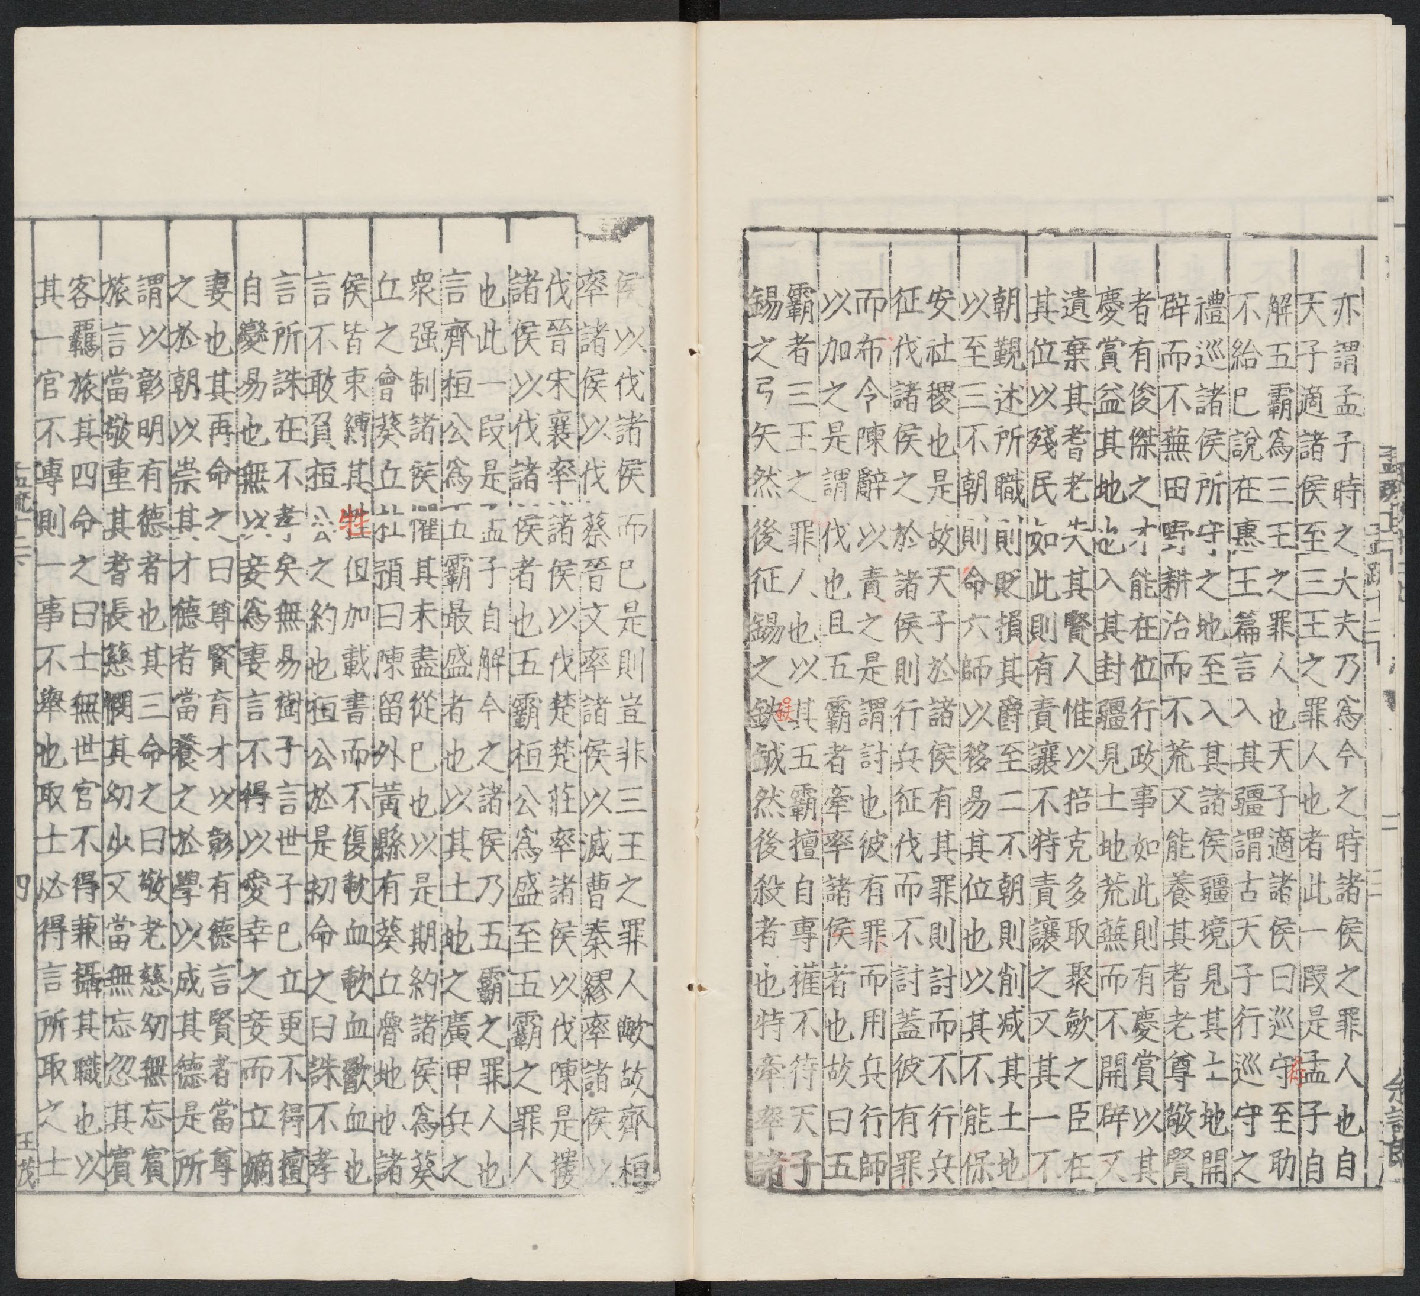 亦謂孟子時之大夫乃爲今之時諸侯之罪人也自
天子適諸侯至三王之罪人也者此一叚是孟子自
解五霸爲三王之罪人也天子適諸侯曰巡守至助
不給已說在惠王篇言入其疆謂古天子行巡守之
禮巡諸侯所守之地至入其諸侯疆境見其土地開
辟而不蕪田野耕治而不荒又能養其耆老尊敬賢
者有俊傑之才能在位行政事如此則有慶賞以其
慶賞益其地也入其封疆見土地荒蕪而不開辟又
遺棄其耆老失其賢人惟以掊克多取聚歛之臣在
其位以殘民如此則有責讓不特責讓之又其一不
朝覲述所職則貶損其爵至二不朝則削减其土地
以至三不朝則命六師以移易其位也以其不能保
安社稷也是故天子於諸侯有其罪則討而不行兵
征伐諸侯之於諸侯則行兵征伐而不討蓋彼有罪
而布令陳辭以責之是謂討也彼有罪而用兵行師
以加之是謂伐也且五霸者牽率諸侯者也故曰五
霸者三王之罪人也以其五霸擅自專權不待天子
錫之弓矢然後征錫之鈇鉞然後殺者也特牽率諸
侯以伐諸侯而已是則豈非三王之罪人歟故齊桓
率諸侯以伐蔡晉文率諸侯以滅曹秦繆率諸侯以
伐晉宋襄率諸侯以伐楚楚莊率諸侯以伐陳是摟
諸侯以伐諸侯者也五霸桓公爲盛至五霸之罪人
也此一叚是孟子自解今之諸侯乃五霸之罪人也
言齊桓公爲五霸最盛者也以其土地之廣甲兵之
衆强制諸侯懼其未盡從已也以是期約諸侯爲葵
丘之會葵丘杜預曰陳留外黃縣有葵丘魯地也諸
侯皆束縛其牲但加載書而不復歃血歃血歠血也
言不敢負桓公之約也桓公於是初命之曰誅不孝
言所誅在不孝矣無易樹子言世子已立更不得擅
自變易也無以妾爲妻言不得以愛幸之妾而立嫡
妻也其再命之曰尊賢育才以彰有德言賢者當尊
之於朝以崇其才德者當養之於學以成其德是所
謂以彰明有德者也其三命之曰敬老慈幼無忘賓
旅言當敬重其耆長慈憫其幼少又當無忘忽其賓
客羈旅其四命之曰士無世官不得兼攝其職也以
其一官不專則一事不舉也取士必得言所取之士
四
王茂